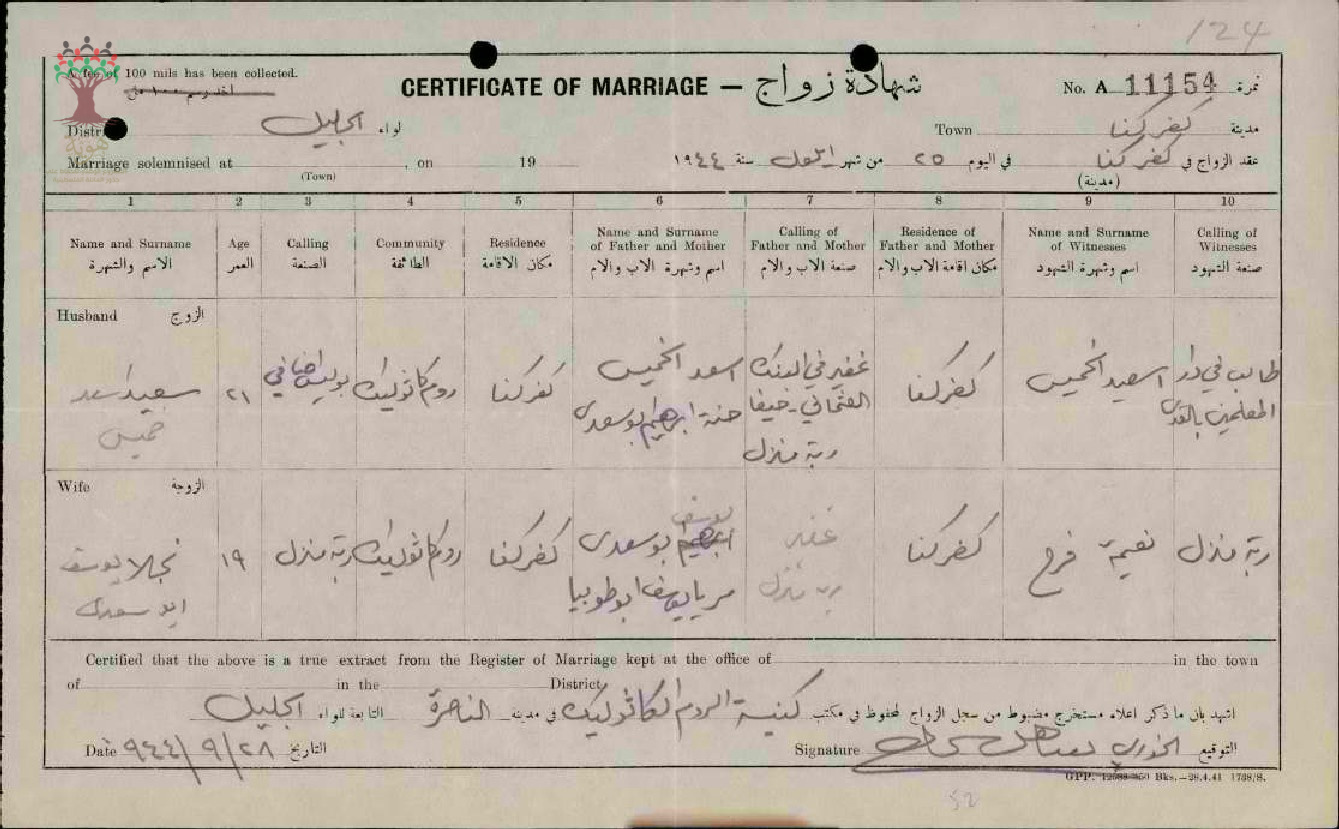 124
A fee of 100 mils has been collected.
اخذ رسم ١٠٠ مل
CERTIFICATE OF MARRIAGE — شهادة زواج
No. A 11154 نمرة
Distr لواء الجليل
Town كفركنا مدينة
Marriage solemnised at , on 19
(Town)
عقد الزواج في كفركنا في اليوم ٢٥ من شهر ايلول سنة ١٩٤٤
(مدينة)
1 2 3 4 5 6 7 8 9 10
Name and Surname الاسم والشهرة
Age العمر
Calling الصنعة
Community الطائفة
Residence مكان الاقامة
Name and Surname of Father and Mother اسم وشهرة الاب والام
Calling of Father and Mother صنعة الاب والام
Residence of Father and Mother مكان اقامة الاب والام
Name and Surname of Witnesses اسم وشهرة الشهود
Calling of Witnesses صنعة الشهود
Husband الزوج
سعيد اسعد
خميس
٢١
بوليس اضافي
روم كاثوليك
كفركنا
اسعد الخميس
حنة ابراهيم ابو سعدى
غفير في البنك
العثماني - حيفا
ربة منزل
كفركنا
اسعيد الخميس
طالب في دار
المعلمين بالقدس
Wife الزوجة
نجلا يوسف
ابو سعدى
١٩
ربة منزل
روم كاثوليك
كفركنا
يوسف
ابراهيم ابو سعدى
مريا يوسف ابو طوبيا
غفير
ربة منزل
كفركنا
نعيمة فرح
ربة منزل
Certified that the above is a true extract from the Register of Marriage kept at the office of in the town
of in the District
اشهد بان ما ذكر اعلاه مستخرج مضبوط من سجل الزواج المحفوظ في مكتب كنيسة الروم الكاثوليك في مدينة الناصرة التابعة للواء الجليل
Date ٩٤٤/٩/٢٨ التاريخ
Signature الخوري التوقيع
GPP. 12088-850 Bks.—28.4.41 1738/S.
52